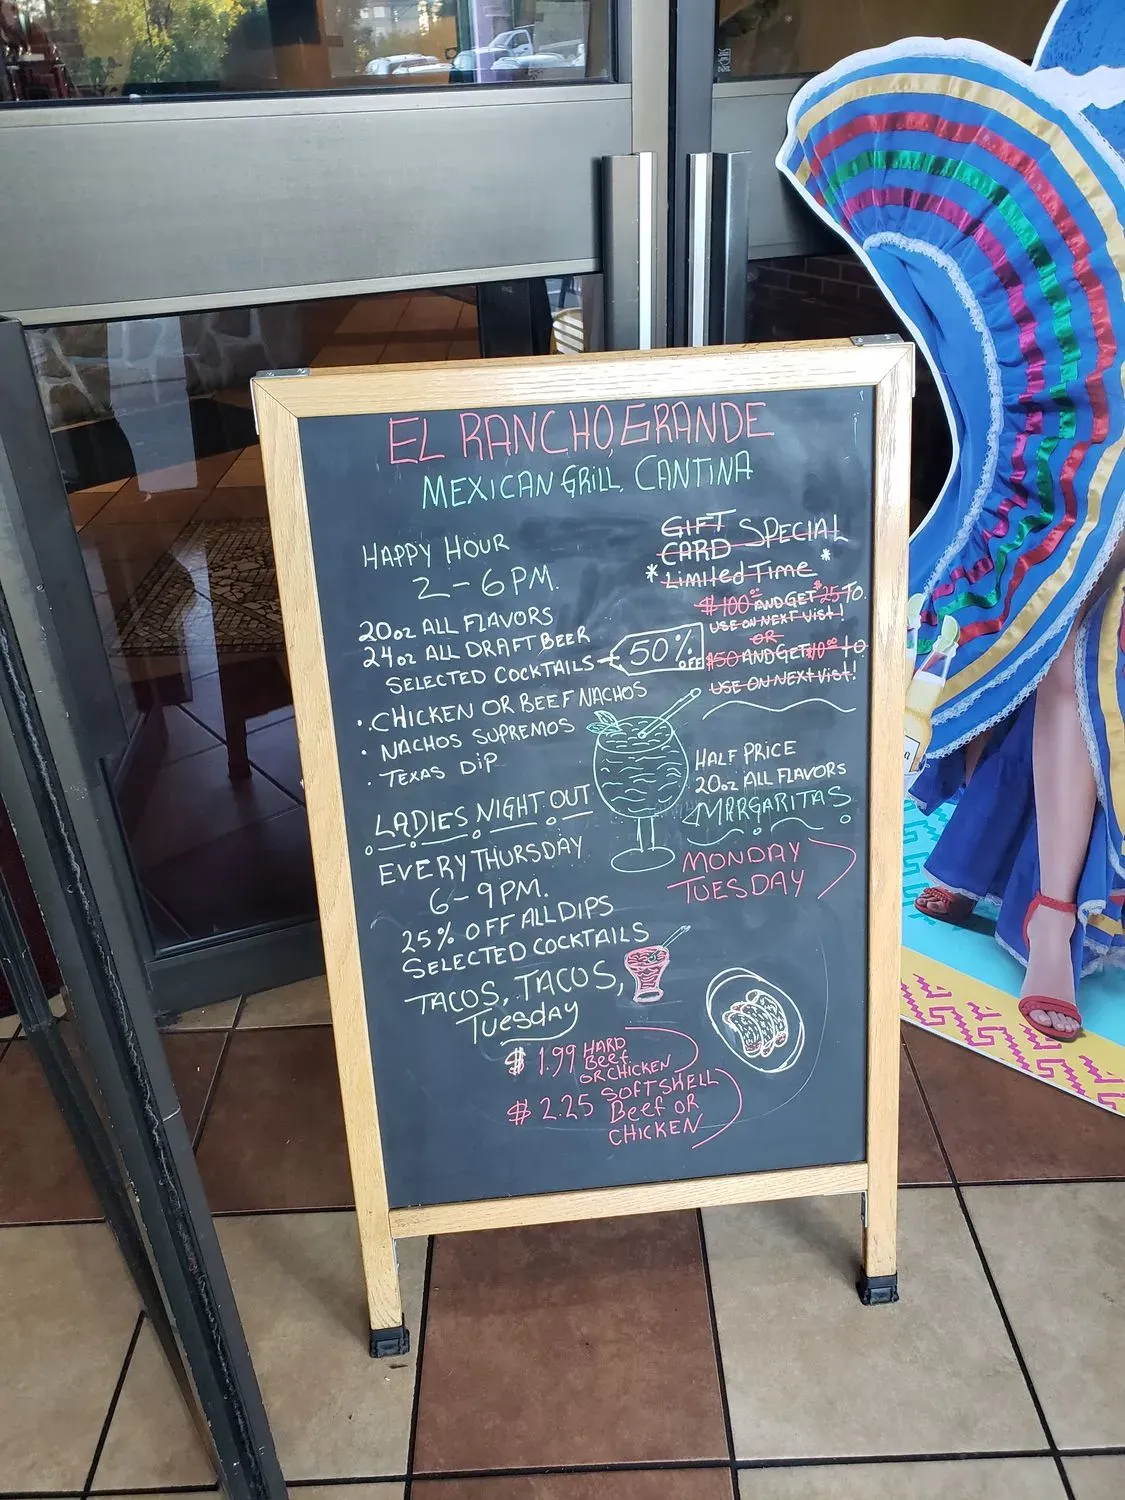 EL RANCHO, GRANDE
MEXICAN GRILL, CANTINA
HAPPY HOUR
2-6 PM.
20oz ALL FLAVORS
24oz ALL DRAFT BEER
SELECTED COCKTAILS
50% OFF
• CHICKEN OR BEEF NACHOS
• NACHOS SUPREMOS
• TEXAS DIP
LADIES NIGHT OUT
EVERY THURSDAY
6-9 PM.
25% OFF ALL DIPS
SELECTED COCKTAILS
TACOS, TACOS,
Tuesday
$ 1.99 HARD
Beef
OR CHICKEN
$ 2.25 SOFT SHELL
Beef OR
CHICKEN
GIFT
CARD SPECIAL
* Limited Time *
$100.00 AND GET $25 TO.
USE ON NEXT Vist!
OR
$50 AND GET $10.00 to
USE ON NEXT Vist!
HALF PRICE
20oz ALL FLAVORS
MARGARITAS
MONDAY
TUESDAY